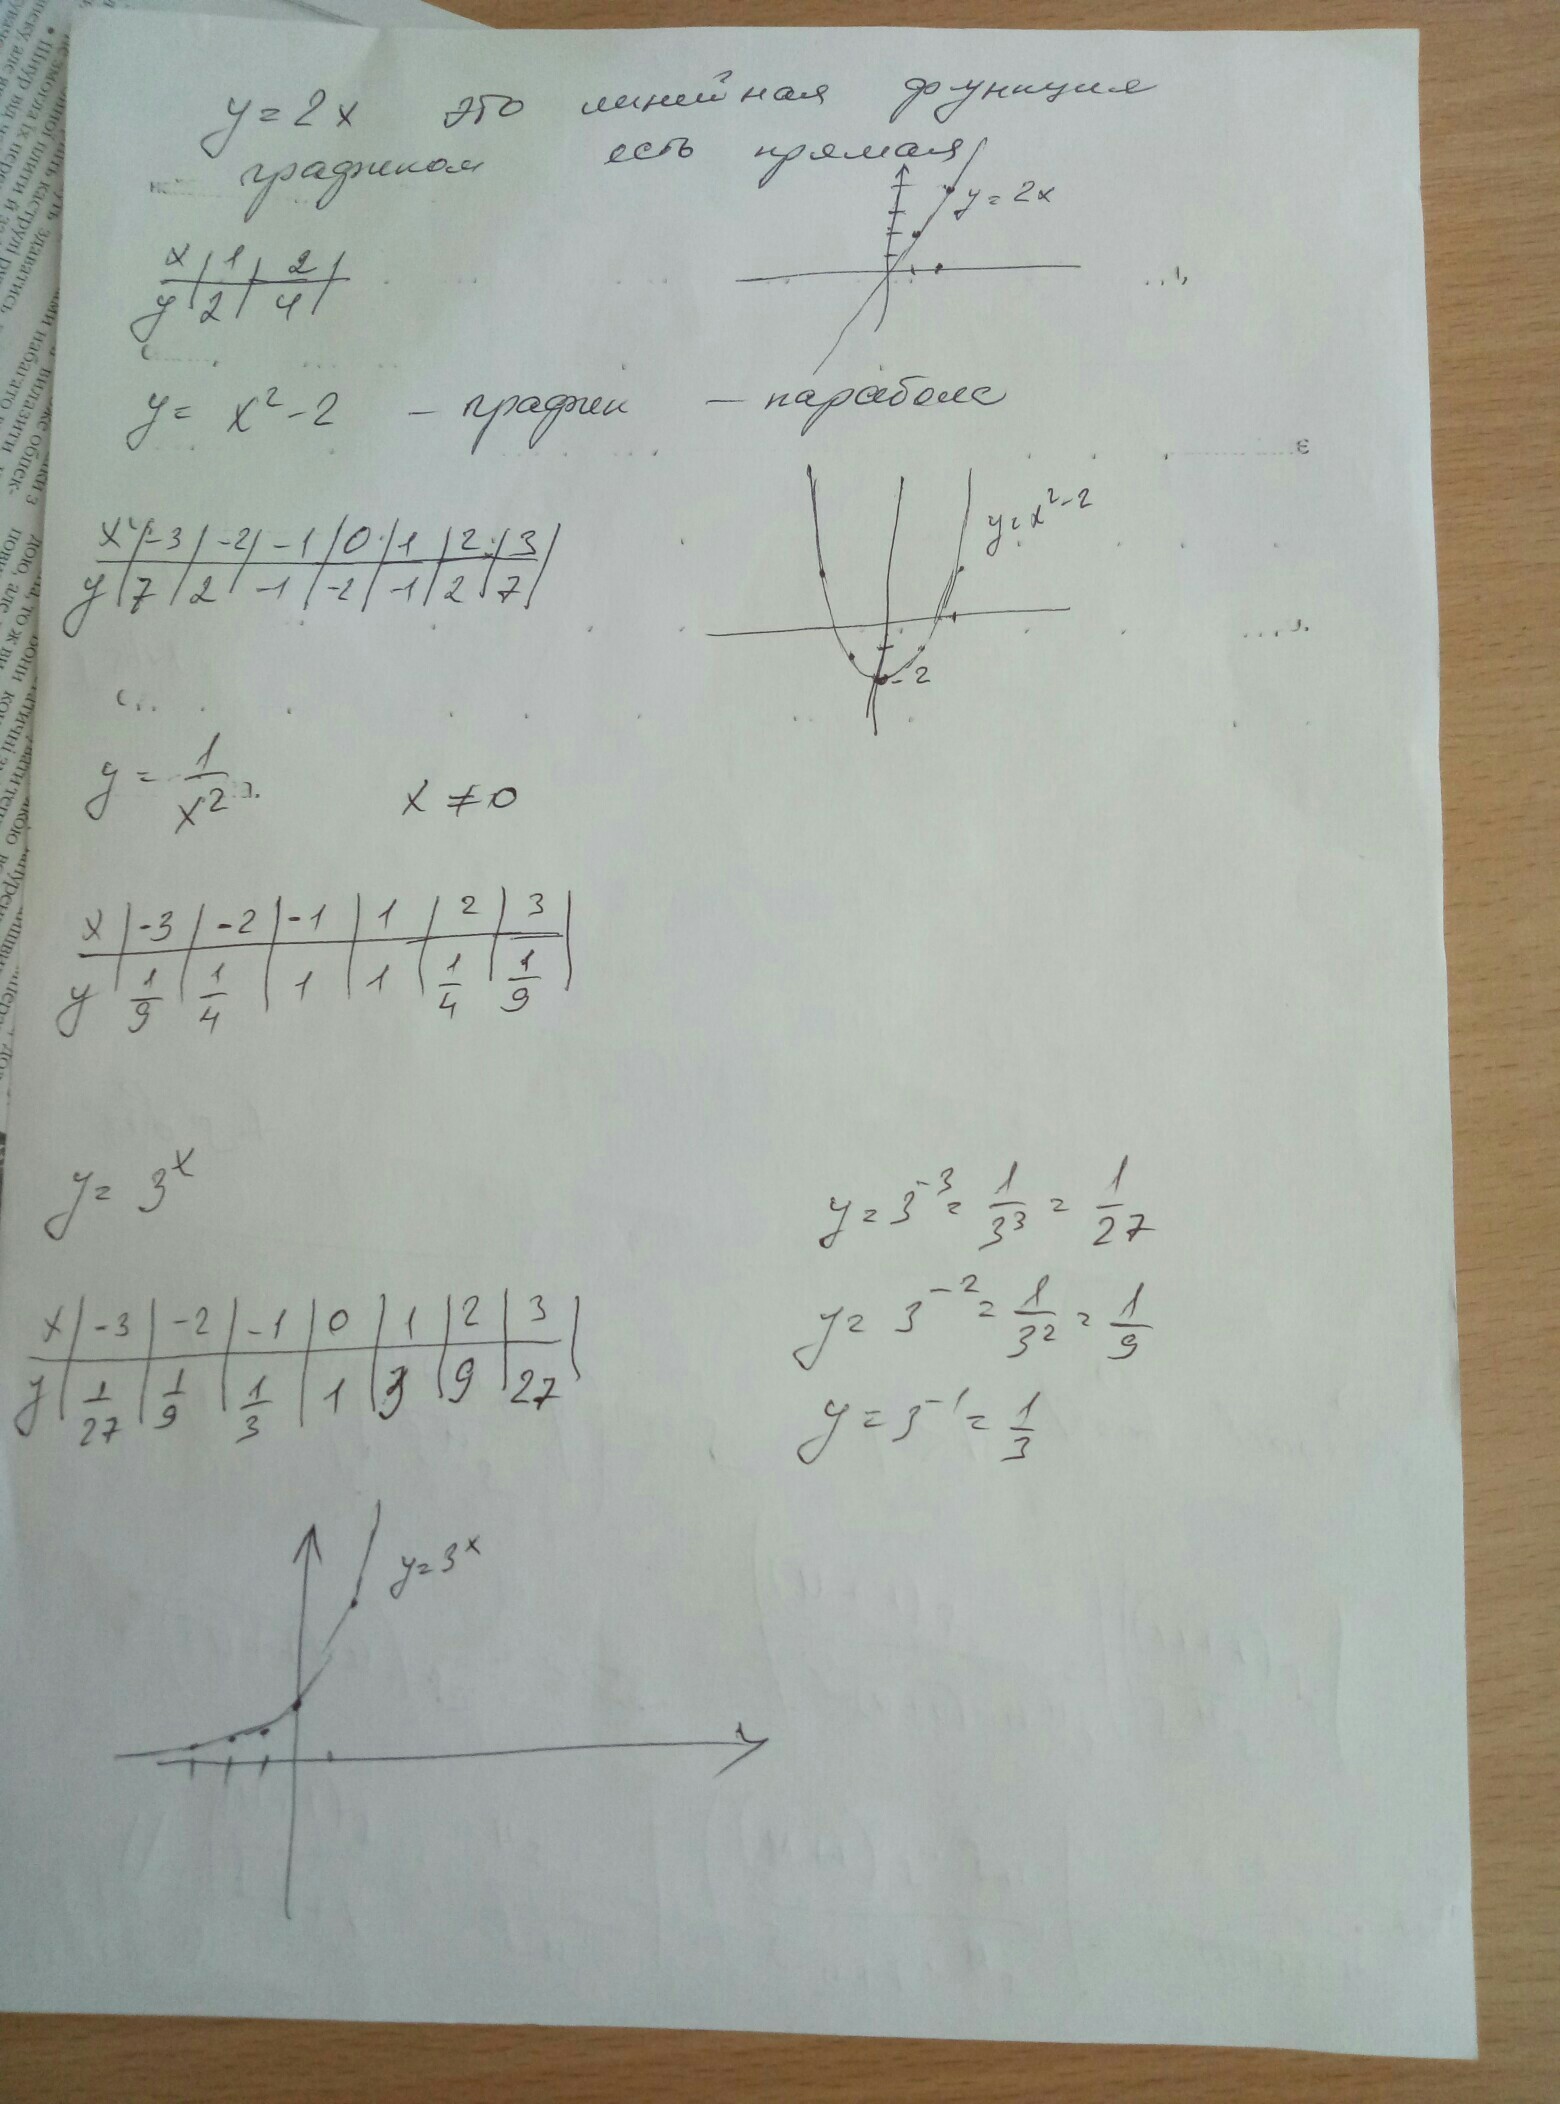 y = 2x это линейная функция
графиком есть прямая
y = 2x
x | 1 | 2 |
y | 2 | 4 |
y = x² - 2 – график – парабола
y = x² - 2
x | -3 | -2 | -1 | 0 | 1 | 2 | 3
y | 7 | 2 | -1 | -2 | -1 | 2 | 7 |
-2
y = 1/x² x ≠ 0
x | -3 | -2 | -1 | 1 | 2 | 3 |
y | 1/9 | 1/4 | 1 | 1 | 1/4 | 1/9 |
y = 3ˣ
y = 3⁻³ = 1/3³ = 1/27
y = 3⁻² = 1/3² = 1/9
y = 3⁻¹ = 1/3
x | -3 | -2 | -1 | 0 | 1 | 2 | 3 |
y | 1/27 | 1/9 | 1/3 | 1 | 3 | 9 | 27
y = 3ˣ